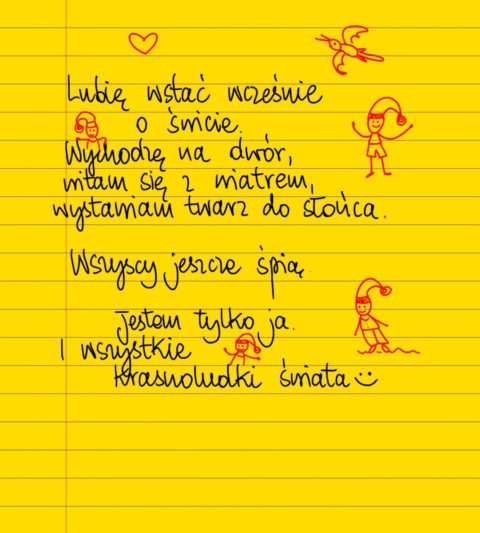 Lubię wstać wcześnie
o świcie.
Wychodzę na dwór,
witam się z wiatrem,
wystawiam twarz do słońca.
Wszyscy jeszcze śpią.
Jestem tylko ja.
I wszystkie
krasnoludki świata☺